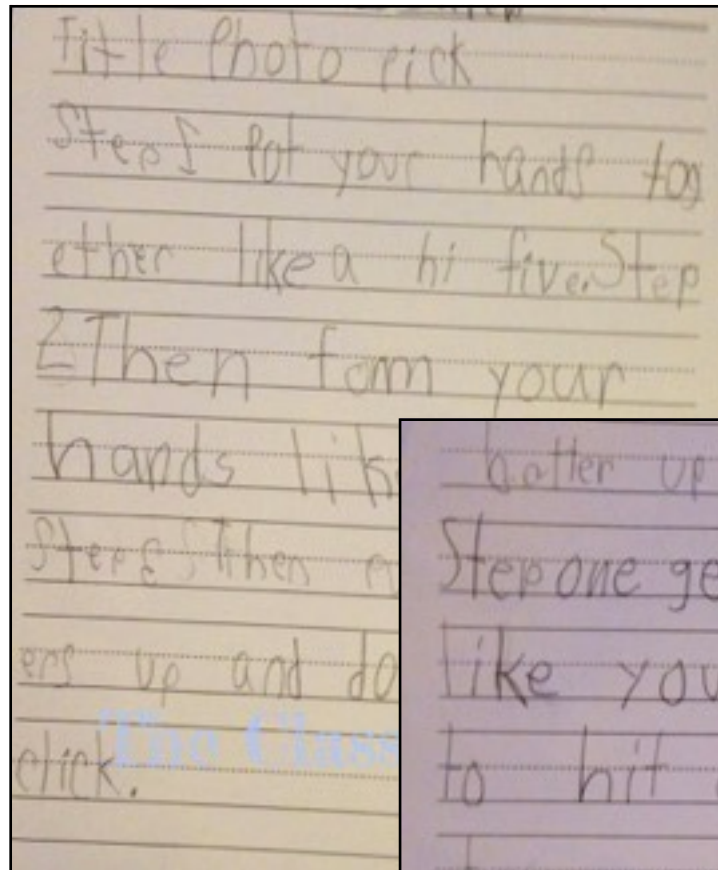 Title Photo pick
Step 1 pot your hands tog
ether like a hi five. Step
2 Then fomm your
hands lik
Then
ers up and do
click.
The Class
batter up
Step one ge
like you
to hit